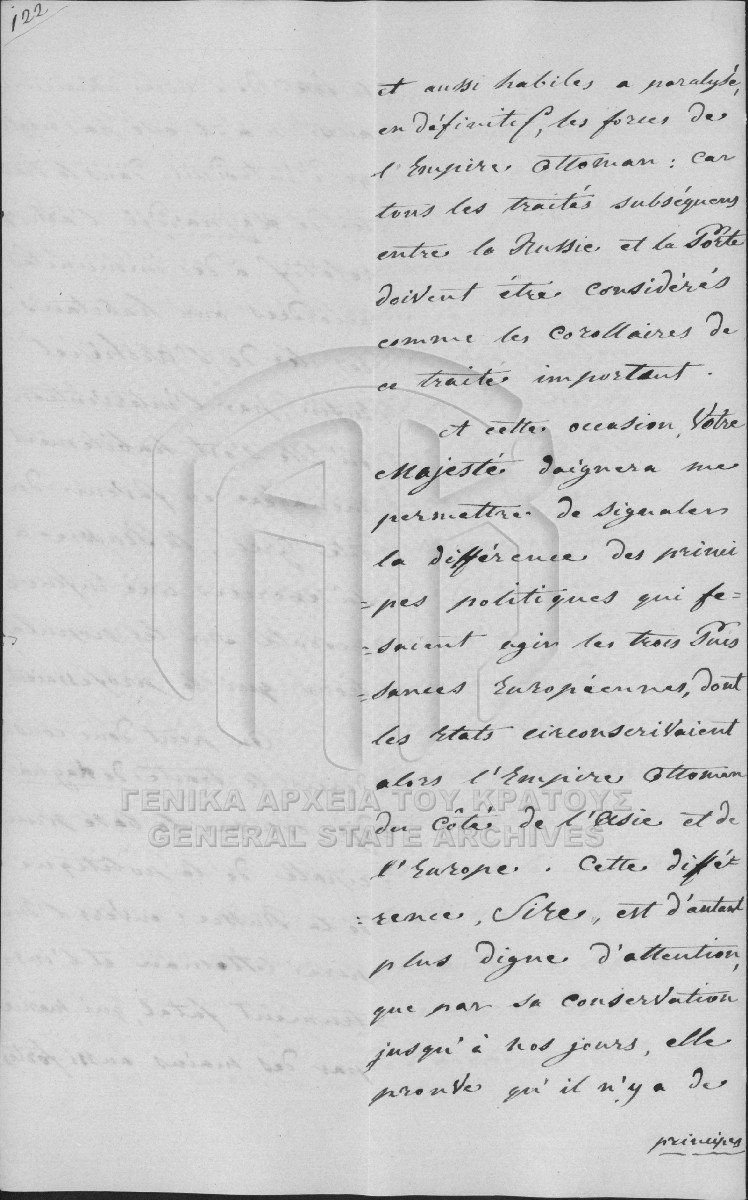 122
et aussi habiles a paralysé,
en définitif, les forces de
l'Empire Ottoman : car
tous les traités subséquens
entre la Russie et la Porte
doivent être considérés
comme les corollaires de
ce traité important.
A cette occasion, Votre
Majesté daignera me
permettre de signaler
la différence des princi
=pes politiques qui fe=
=saient agir les trois Puis
=sances Européennes, dont
les Etats circonscrivaient
alors l'Empire Ottoman
du côté de l'Asie et de
l'Europe. Cette diffé=
=rence, Sire, est d'autant
plus digne d'attention,
que par sa conservation
jusqu'à nos jours, elle
prouve qu'il n'y a de
principes
ΓΕΝΙΚΑ ΑΡΧΕΙΑ ΤΟΥ ΚΡΑΤΟΥΣ
GENERAL STATE ARCHIVES